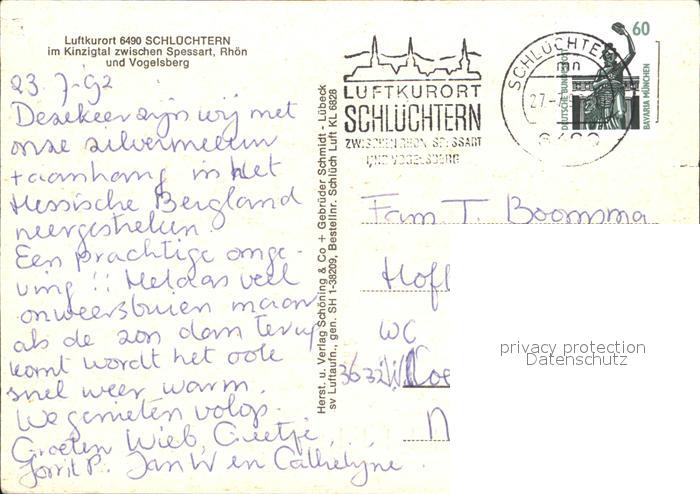 Luftkurort 6490 SCHLÜCHTERN
im Kinzigtal zwischen Spessart, Rhön
und Vogelsberg
23.7-92
Deze keer zijn wij met
onze zilvermeeuw
+ aanhang in het
Hessische Bergland
neergestreken.
Een prachtige omge-
ving !! Helaas veel
onweersbuien maar
als de zon dan terug
komt wordt het ook
snel weer warm.
We genieten volop.
Groeten Wieb, Geetje,
Jorrit P. Jan W en Cathelyne.
Herst. u. Verlag Schöning & Co + Gebrüder Schmidt - Lübeck
sv Luftaufn., gen. SH 1-38209, Bestellnr. Schlüch Luft KL 6828
LUFTKURORT
SCHLÜCHTERN
ZWISCHEN RHÖN, SPESSART
UND VOGELSBERG
SCHLÜCHTERN
mn
27.-7.
6490
60
DEUTSCHE BUNDESPOST
BAVARIA MÜNCHEN
Fam T. Boomsma
Hofl
WC
3632
N
privacy protection
Datenschutz